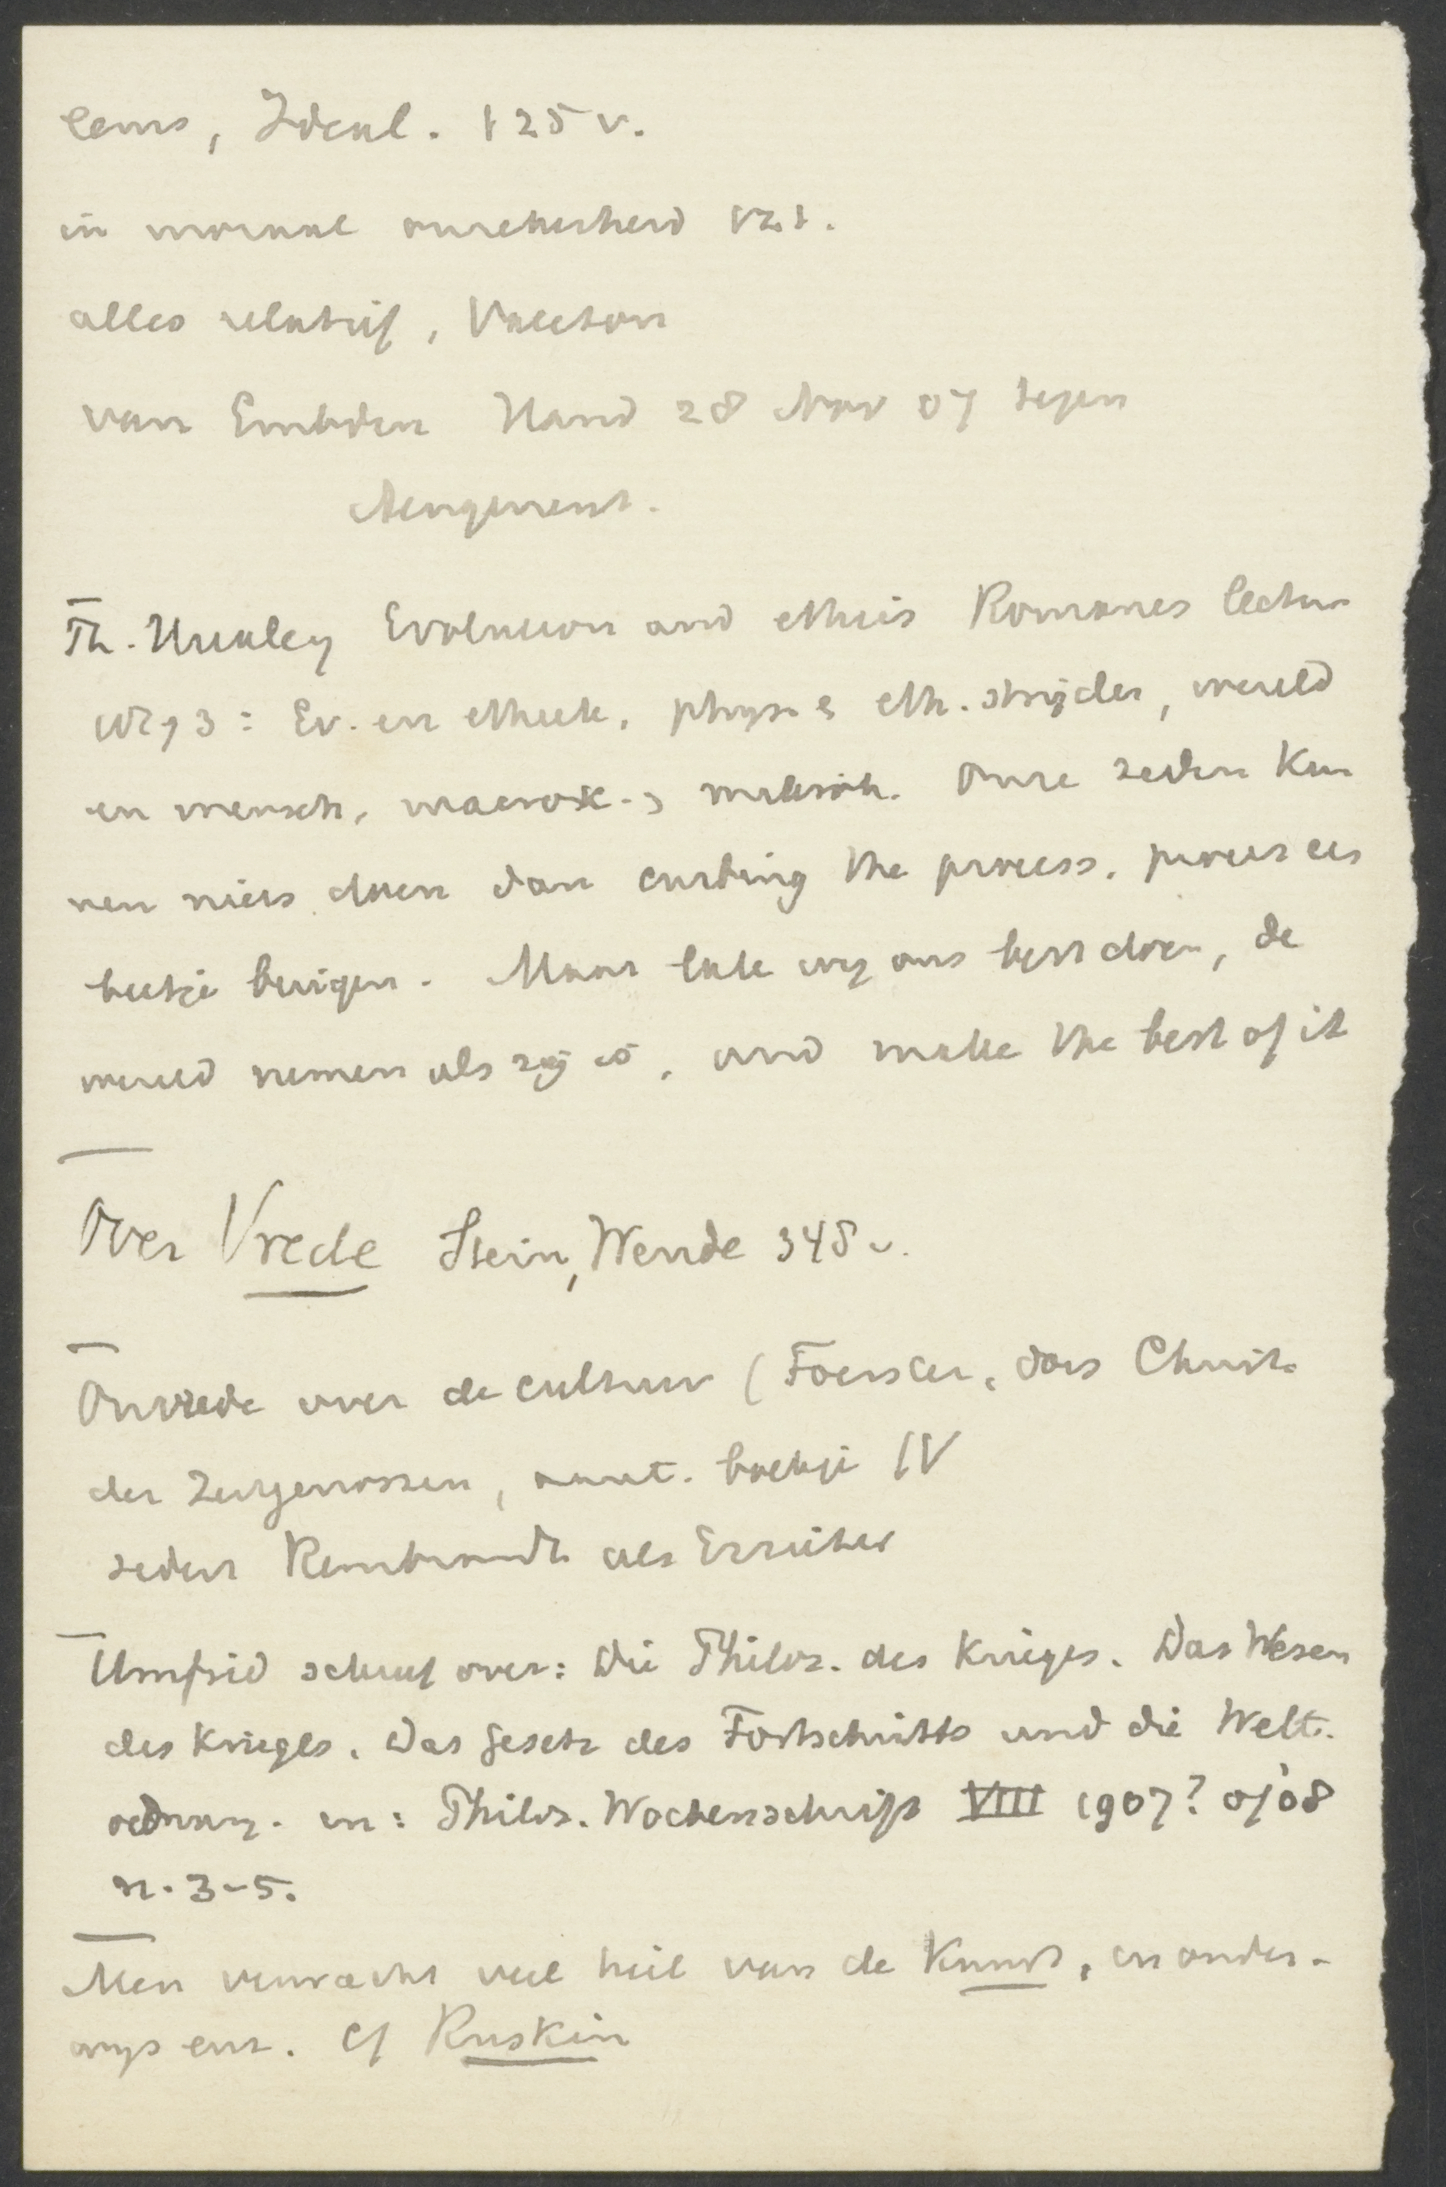 lems, Ideal. 125 v.
in moraal onzekerheid 121.
alles relatief, Valeton
van Embden Hand 28 Nov 07 tegen
Th. Huxley Evolution and ethics Romanes lectur
1893: Ev. en ethiek, phys. & eth. strijden, wereld
en mensch, macrok. & mikrok. Onze zeden kun
nen niets doen dan curbing the process, proces een
beetje buigen. Maar laten wij ons best doen, de
wereld nemen als zij is, and make the best of it
Over Vrede Stein, Wende 348 v.
Onvrede over de cultuur (Foerster, das Christ.
der Zeitgenossen, aant. boekje IV
sedert Rembrandt als Erzieher
Umfrid schreef over: Die Philos. des Krieges. Das Wesen
des Krieges. Das Gesetz des Fortschritts und die Welt-
ordnung. in: Philos. Wochenschrift VIII 1907? of '08
n. 3-5.
Men verwacht veel heil van de Kunst, en onder-
wijs enz. Cf Ruskin